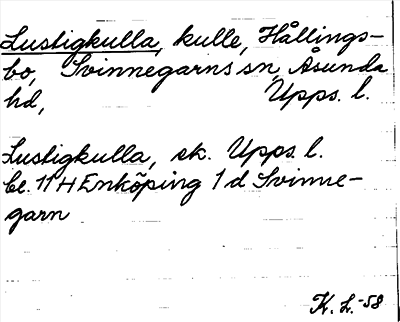 Lustigkulla, kulle, Hållings-
bo, Svinnegarns sn, Åsunda
hd, Upps. l.
Lustigkulla, sk. Upps. l.
bl. 11 H Enköping 1 d Svinne-
garn
K. L. -58